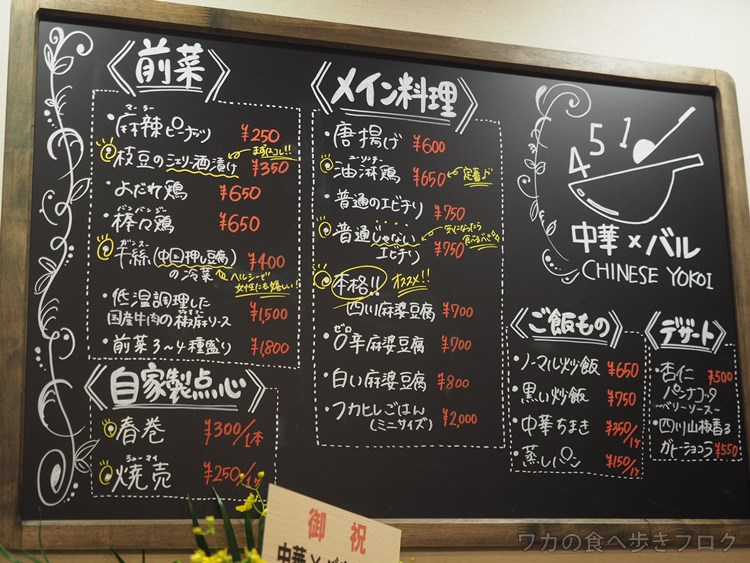 《前菜》
マーラー
・麻辣ピーナッツ ¥250
まずはコレ!!
枝豆のシェリー酒漬け ¥350
・よだれ鶏 ¥650
バンバンジー
・棒々鶏 ¥650
ガンスー
干絲(中国押し豆腐)の冷菜 ¥400
ヘルシーで
女性にも嬉しい!
・低温調理した
国産牛肉の椒麻ソース ¥1,500
・前菜3〜4種盛り ¥1,800
《自家製点心》
春巻 ¥300/1本
シューマイ
焼売 ¥250/1ケ
《メイン料理》
・唐揚げ ¥600
ユーリンチー
油淋鶏 ¥650
定番!!
・普通のエビチリ ¥750
普通じゃない
エビチリ ¥750
気になったら
本格!! オススメ!!
四川麻婆豆腐 ¥700
・辛麻婆豆腐 ¥700
・白い麻婆豆腐 ¥800
・フカヒレごはん
(ミニサイズ) ¥2,000
451
中華×バル
CHINESE YOKOI
《ご飯もの》
・ノーマル炒飯 ¥650
・黒い炒飯 ¥750
・中華ちまき ¥350/1ケ
・蒸しパン ¥150/1ケ
《デザート》
・杏仁
パンナコッタ ¥500
〜ベリーソース〜
・四川山椒香る
ガトーショコラ ¥550
御祝
中華×バル
ワカの食べ歩きブログ